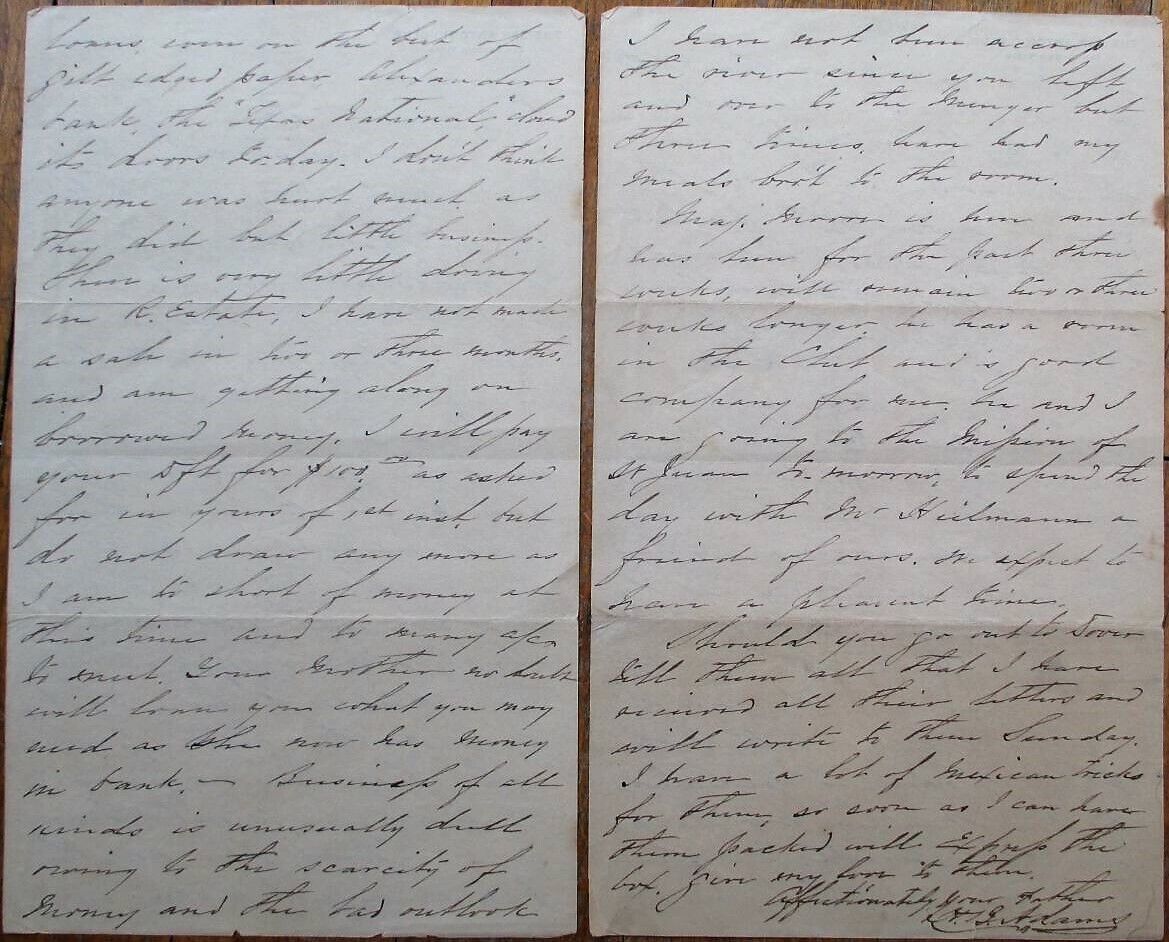 loans, even on the best of
gilt edged paper Alexanders
bank, the "Texas National," closed
its doors to-day. I don't think
anyone was hurt much as
they did but little business.
There is very little doing
in R. Estate, I have not made
a sale in two or three months.
and am getting along on
borrowed money, I will pay
your Dft for $100.00 as asked
for in yours of 1st inst. but
do not draw any more as
I am to short of money at
this time and to many a/cs
to meet. Your Mother no doubt
will loan you what you may
need as she now has money
in bank. — Business of all
kinds is unusually dull
owing to the scarcity of
money and the bad outlook
I have not been accross
the river since you left
and over to the Menger but
three times. have had my
meals bro't to the room.
Maj. Moore is here and
has been for the past three
weeks, will remain two or three
weeks longer he has a room
in the Club and is good
company for me. he and I
are going to the Mission of
St Juan to-morrow, to spend the
day with Mr Heilmann a
friend of ours. we expect to
have a pleasent time.
Should you go out to Dover
tell them all that I have
received all their letters and
will write to them Sunday.
I have a lot of Mexican tricks
for them, so soon as I can have
them packed will Express the
box. give my love to them.
Affectionately your Father
H. B. Adams